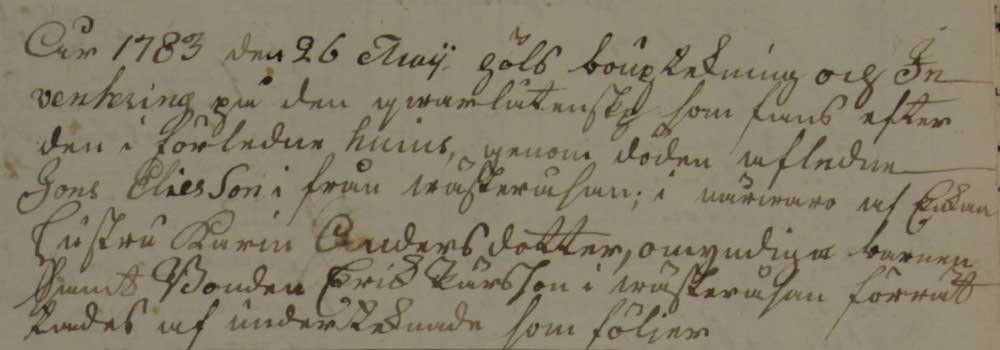 Åhr 1783 den 26 Maij. höls bouptekning och In
ventering på den qwarlåtenskp som fans efter
den i förledne huius, genom döden afledne
Jons Eliesson i från wästeråhsan; i närwaro af Enkan
Hustru Karin Andersdotter, omyndiga barnen
Samt Bonden Erik Larsson i wästeråhsan förrät
tades af underteknade som följer